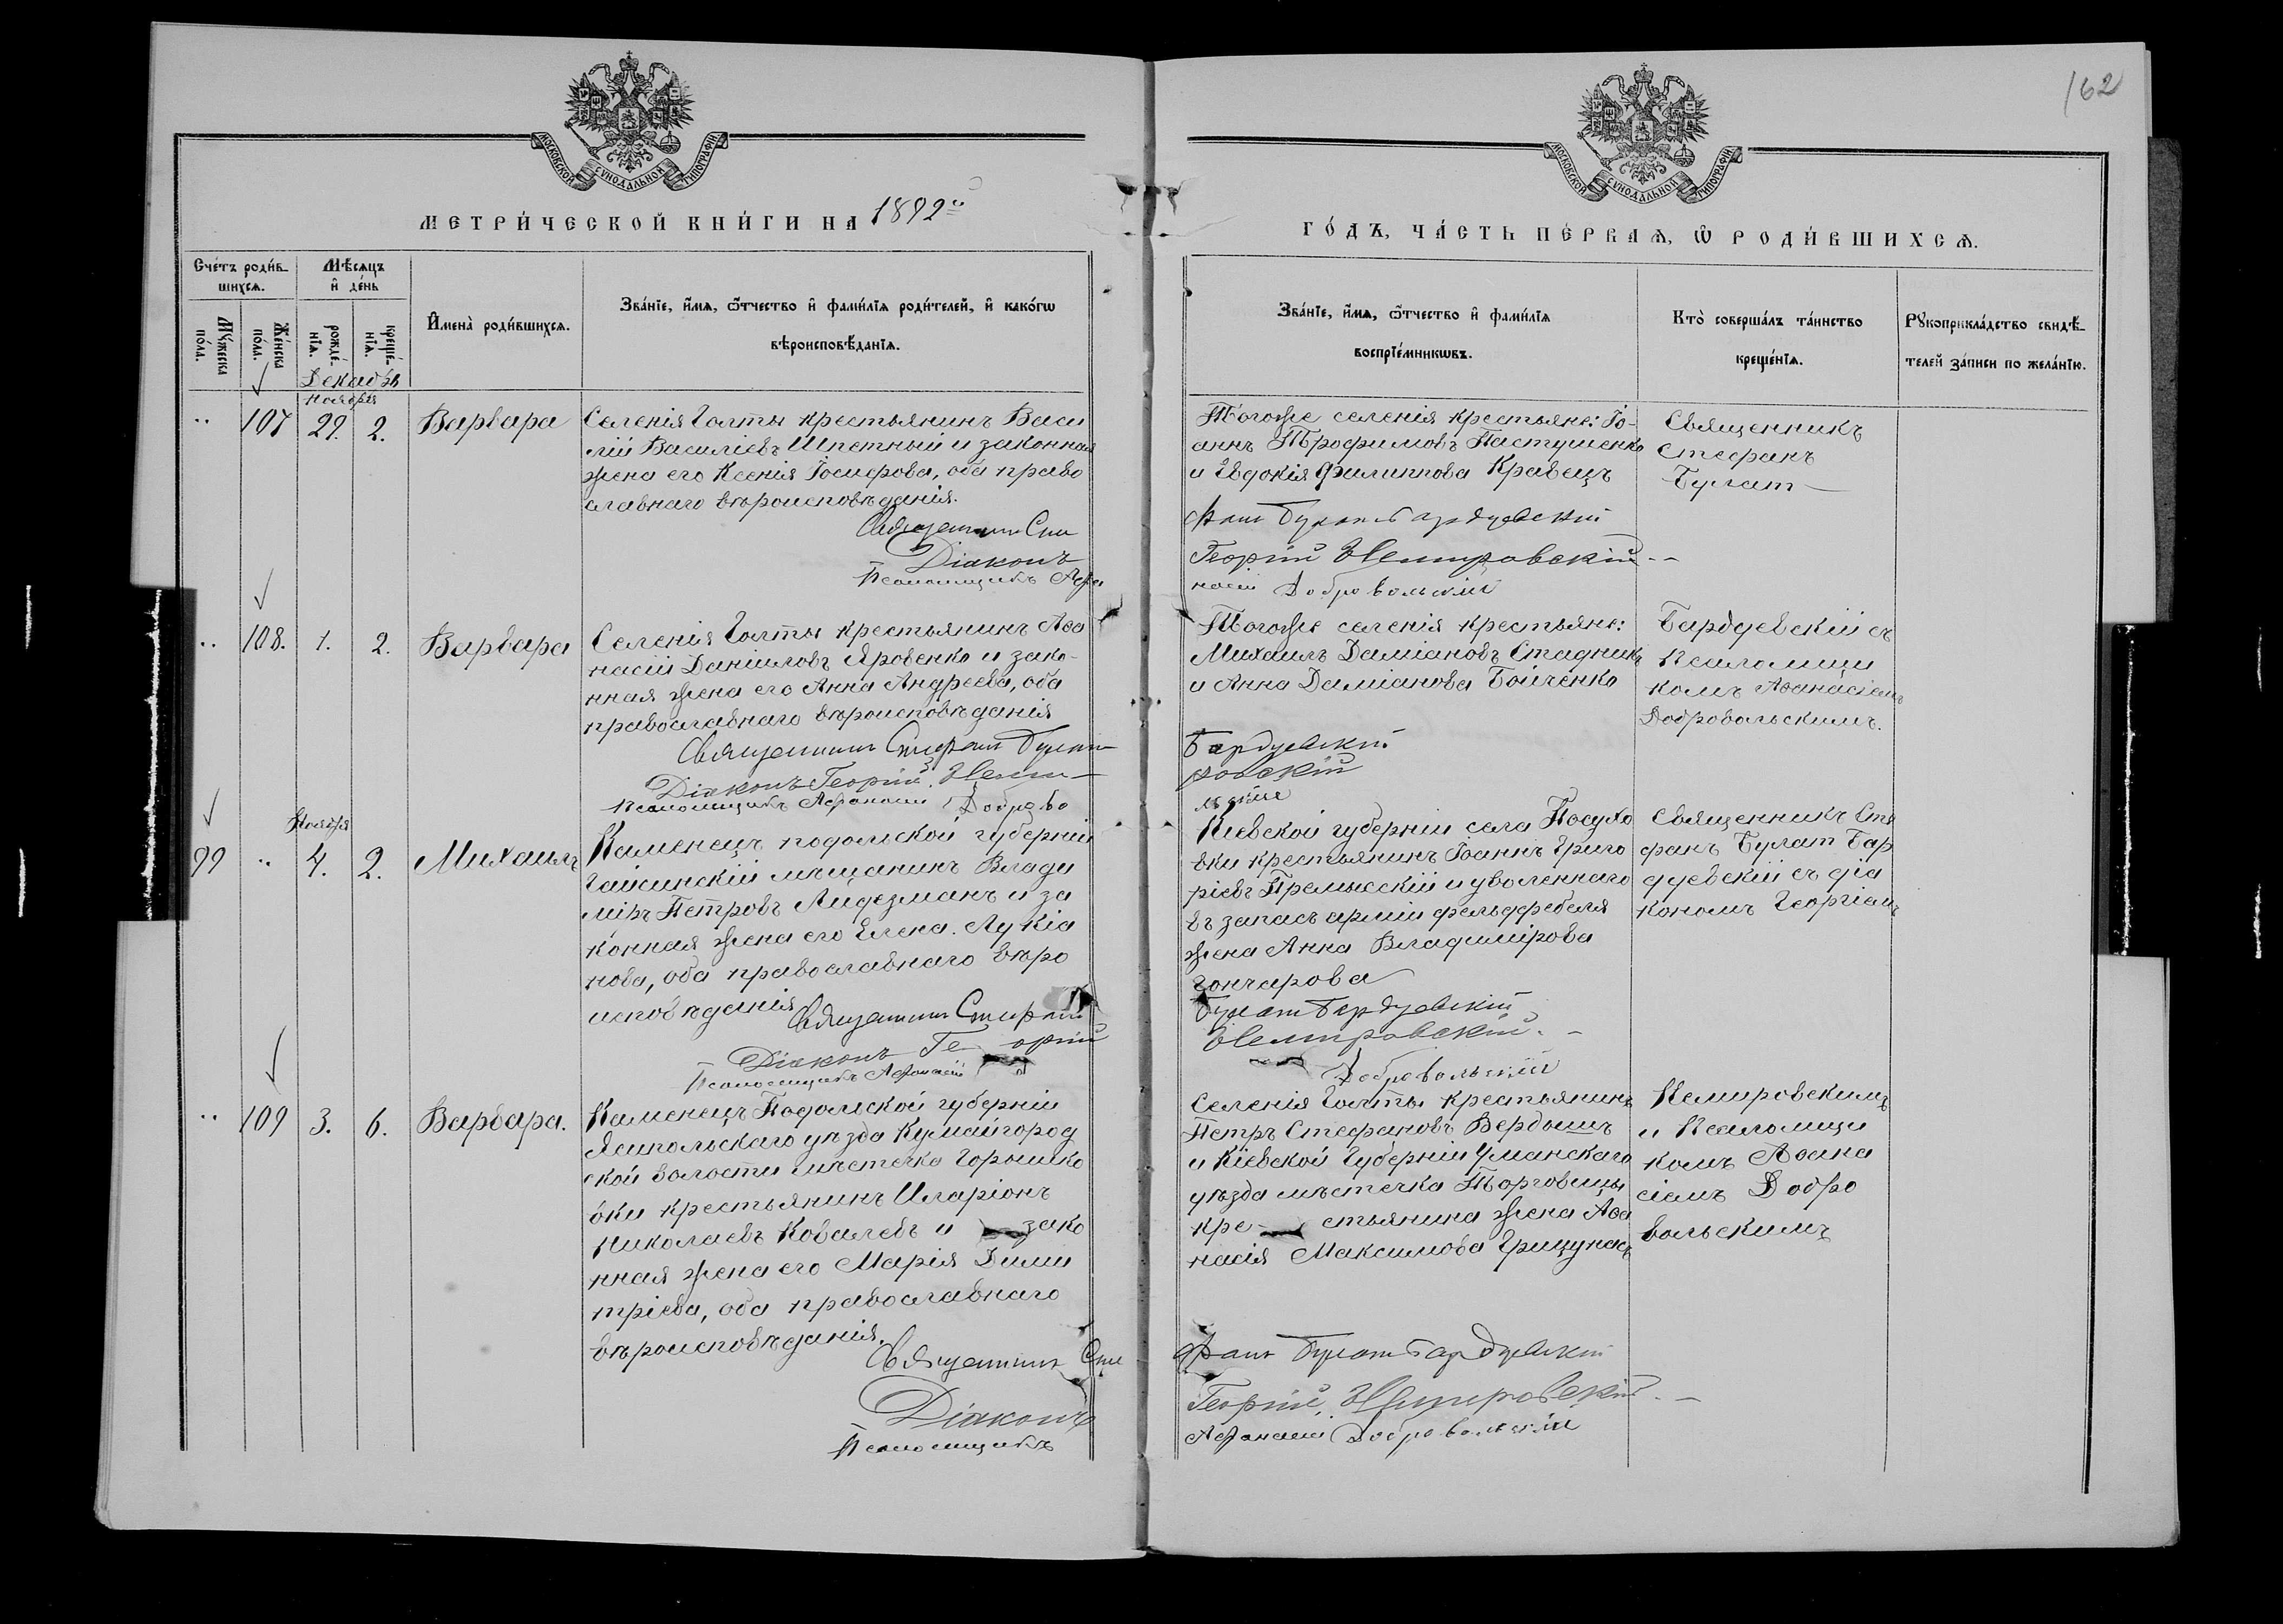 162
МОСКОВСКОЙ СѴНОДАЛЬНОЙ ТИПОГРАФІИ
МОСКОВСКОЙ СѴНОДАЛЬНОЙ ТИПОГРАФІИ
МЕТРИ́ЧЕСКОЙ КНИ́ГИ НА 1892й
ГО́ДЪ, ЧА́СТЬ ПЕ́РВАѦ, Ѡ РОДИ́ВШИХСѦ.
Сче́тъ роди́в-
шихсѧ.
Мѣ́сѧцъ
и҆ де́нь
Мꙋ́жеска
по́ла.
Же́нска
по́ла.
рожде́-
нїѧ.
креще́-
нїѧ.
И҆мена̀ роди́вшихсѧ.
Зва́нїе, и҆́мѧ, ѻ҆́тчество и҆ фами́лїѧ роди́телей, и҆ како́гѡ
вѣроисповѣ́данїѧ.
Зва́нїе, и҆́мѧ, ѻ҆́тчество и҆ фами́лїѧ
воспрїе́мникѡвъ.
Кто̀ соверша́лъ та́инство
креще́нїѧ.
Рꙋкоприкла́дство свидѣ́-
телей за́писи по жела́нїю.
Декабрь
Ноября
107 29. 2. Варвара
Селенія Голты крестьянинъ Васи
лій Василіевъ Шпетный и законная
жена его Ксенія Іосифова, оба право
славнаго вѣроисповѣданія.
Священникъ Сте
Діаконъ
Псаломщикъ Афа
Тогоже селенія крестьяне: Іо-
аннъ Трофимовъ Пастушенко
и Евдокія Филиппова Кравецъ
фанъ Булатъ Бардуевскій
Георгій Немировскій
насій Добровольскій
Священникъ
Стефанъ
Булат
108. 1. 2. Варвара
Селенія Голты крестьянинъ Аѳа
насій Даніиловъ Яровенко и зако-
нная жена его Анна Андреева, оба
православнаго вѣроисповѣданія
Священникъ Стефанъ Булатъ
Діаконъ Георгій Неми
Псаломщикъ Афанасій Доброво
Тогоже селенія крестьяне:
Михаилъ Даміановъ Стадникъ
и Анна Даміанова Бойченко
Бардуевскій
ровскій
льскій
Бардуевскій съ
Псаломщи
комъ Аѳанасіемъ
Добровольскимъ.
Ноября
99 4. 2. Михаилъ
Каменецъ подольской губерніи
Гайсинскій мѣщанинъ Влади
міръ Петровъ Лидезманъ и за
конная жена его Елена Лукіа
нова, оба православнаго вѣро
исповѣданія
Священникъ Стефанъ
Діаконъ Георгій
Псаломщикъ Афанасій
Кіевской губерніи села Посухо
вки крестьянинъ Іоаннъ Григо
ріевъ Премысскій и уволеннаго
въ запасъ арміи фельдфебеля
жена Анна Владимірова
Гончарова
Булатъ Бардуевскій
Немировскій.
Добровольскій
Священникъ Сте
фанъ Булат Бар
дуевскій съ діа
кономъ Георгіемъ
109 3. 6. Варвара.
Каменецъ Подольской губерніи
Ямпольскаго уѣзда Кумайгород
ской волости мѣстечка Горышко
вки крестьянинъ Иларіонъ
Николаевъ Ковалевъ и зако
нная жена его Марія Дими
тріева, оба православнаго
вѣроисповѣданія.
Священникъ Сте
Діаконъ
Псаломщикъ
Селенія Голты крестьянинъ
Петръ Стефановъ Вердышъ
и Кіевской Губерніи Уманскаго
уѣзда мѣстечка Торговицы
крестьянина жена Аѳа
насія Максимова Грицунасъ
фанъ Булатъ Бардуевскій
Георгій Немировскій
Афанасій Добровольскій
Немировскимъ
и Псаломщи
комъ Аѳана
сіемъ Добро
вольскимъ